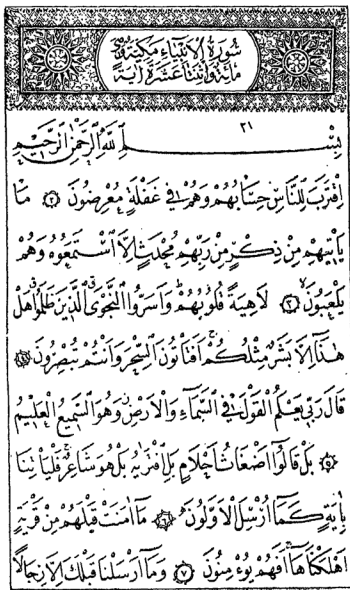 سُورَةُ الْاَنْبِيَاءِ مَكِّيَّةٌ وَهِيَ
مِائَةٌ وَاثْنَتَا عَشْرَةَ اٰيَةً
٢١
بِسْمِ اللّٰهِ الرَّحْمٰنِ الرَّحِيمِ
اِقْتَرَبَ لِلنَّاسِ حِسَابُهُمْ وَهُمْ فِي غَفْلَةٍ مُعْرِضُونَ ٢ مَا
يَأْتِيهِمْ مِنْ ذِكْرٍ مِنْ رَبِّهِمْ مُحْدَثٍ اِلَّا اسْتَمَعُوهُ وَهُمْ
يَلْعَبُونَ ٣ لَاهِيَةً قُلُوبُهُمْ وَاَسَرُّوا النَّجْوَى الَّذِينَ ظَلَمُوا هَلْ
هٰذَا اِلَّا بَشَرٌ مِثْلُكُمْ اَفَتَأْتُونَ السِّحْرَ وَاَنْتُمْ تُبْصِرُونَ ٤
قَالَ رَبِّي يَعْلَمُ الْقَوْلَ فِي السَّمَاءِ وَالْاَرْضِ وَهُوَ السَّمِيعُ الْعَلِيمُ
٥ بَلْ قَالُوا اَضْغَاثُ اَحْلَامٍ بَلِ افْتَرٰيهُ بَلْ هُوَ شَاعِرٌ فَلْيَأْتِنَا
بِاٰيَةٍ كَمَا اُرْسِلَ الْاَوَّلُونَ ٦ مَا اٰمَنَتْ قَبْلَهُمْ مِنْ قَرْيَةٍ
اَهْلَكْنَاهَا اَفَهُمْ يُؤْمِنُونَ ٧ وَمَا اَرْسَلْنَا قَبْلَكَ اِلَّا رِجَالًا